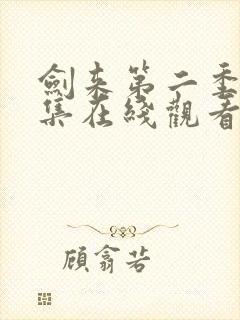 劍来第二季
集在綫觀看
顧翕若